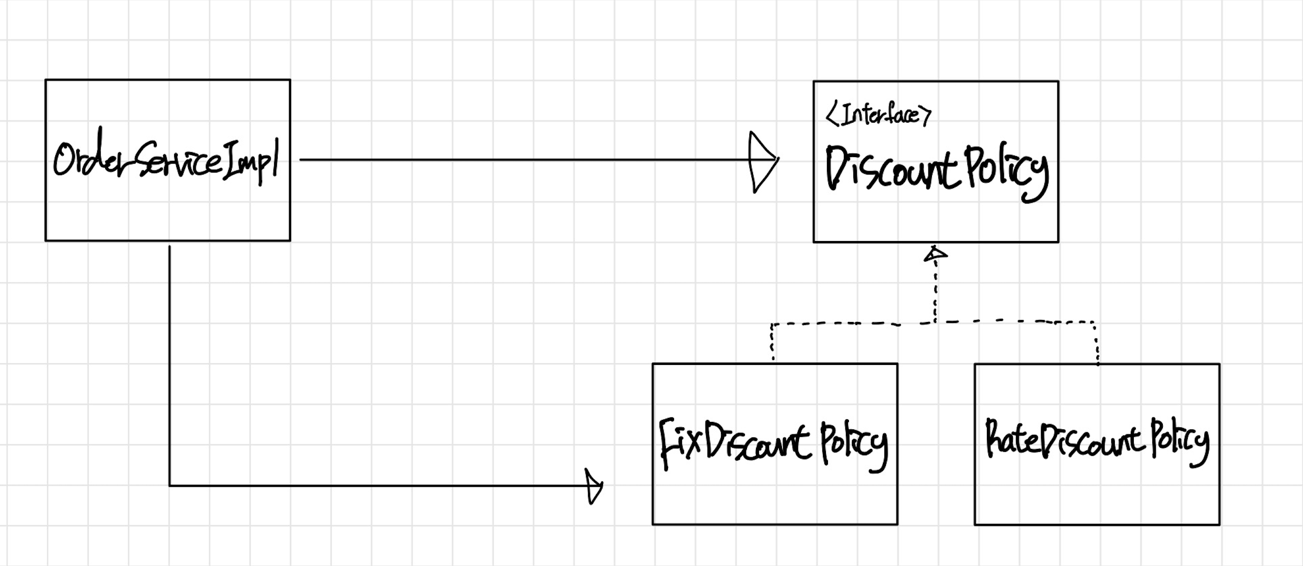 OrderServiceImpl
<Interface>
DiscountPolicy
FixDiscount Policy
RateDiscountPolicy